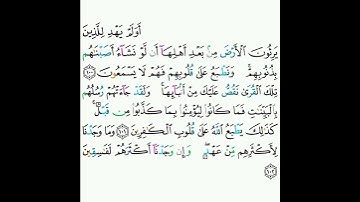 أَوَلَمْ يَهْدِ لِلَّذِينَ
يَرِثُونَ ٱلْأَرْضَ مِنۢ بَعْدِ أَهْلِهَآ أَن لَّوْ نَشَآءُ أَصَبْنَٰهُم
بِذُنُوبِهِمْ ۚ وَنَطْبَعُ عَلَىٰ قُلُوبِهِمْ فَهُمْ لَا يَسْمَعُونَ ١٠٠
تِلْكَ ٱلْقُرَىٰ نَقُصُّ عَلَيْكَ مِنْ أَنۢبَآئِهَا ۚ وَلَقَدْ جَآءَتْهُمْ رُسُلُهُم
بِٱلْبَيِّنَٰتِ فَمَا كَانُوا۟ لِيُؤْمِنُوا۟ بِمَا كَذَّبُوا۟ مِن قَبْلُ ۚ
كَذَٰلِكَ يَطْبَعُ ٱللَّهُ عَلَىٰ قُلُوبِ ٱلْكَٰفِرِينَ ١٠١ وَمَا وَجَدْنَا
لِأَكْثَرِهِم مِّنْ عَهْدٍ ۖ وَإِن وَجَدْنَآ أَكْثَرَهُمْ لَفَٰسِقِينَ
١٠٢